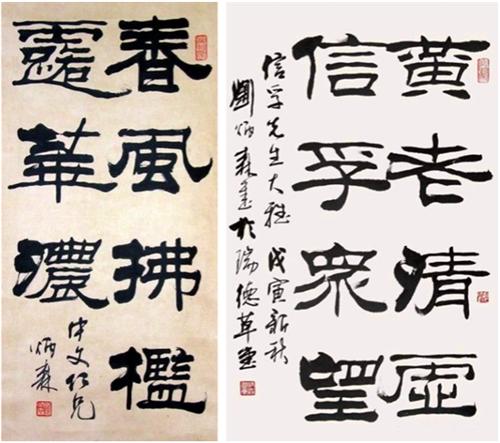 春風拂檻
露華濃
仲文仁兄
炳森
黃老清虛
信孚衆望
信孚先生大雅 戊寅新秋
劉炳森書於瑞德草堂